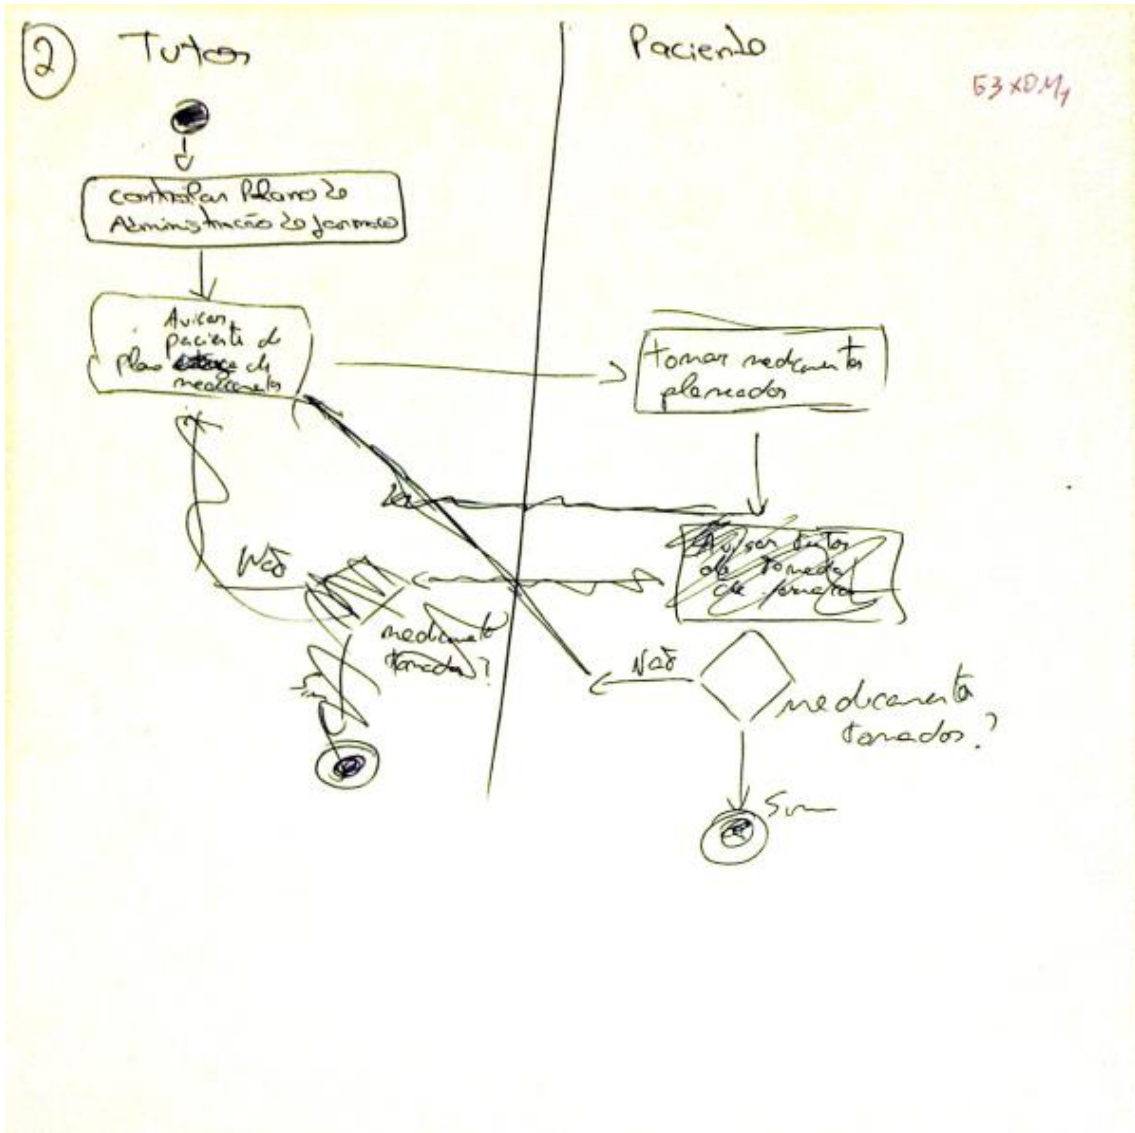 2
Tutor
Paciente
controlar Plano de
Administração de farmaco
Avisar
paciente do
plano de
medicamentos
tomar medicamentos
planeados
Avisar tutor
de tomada
de farmaco
Não
medicamento
tomado?
Sim
Não
medicamentos
tomados?
Sim